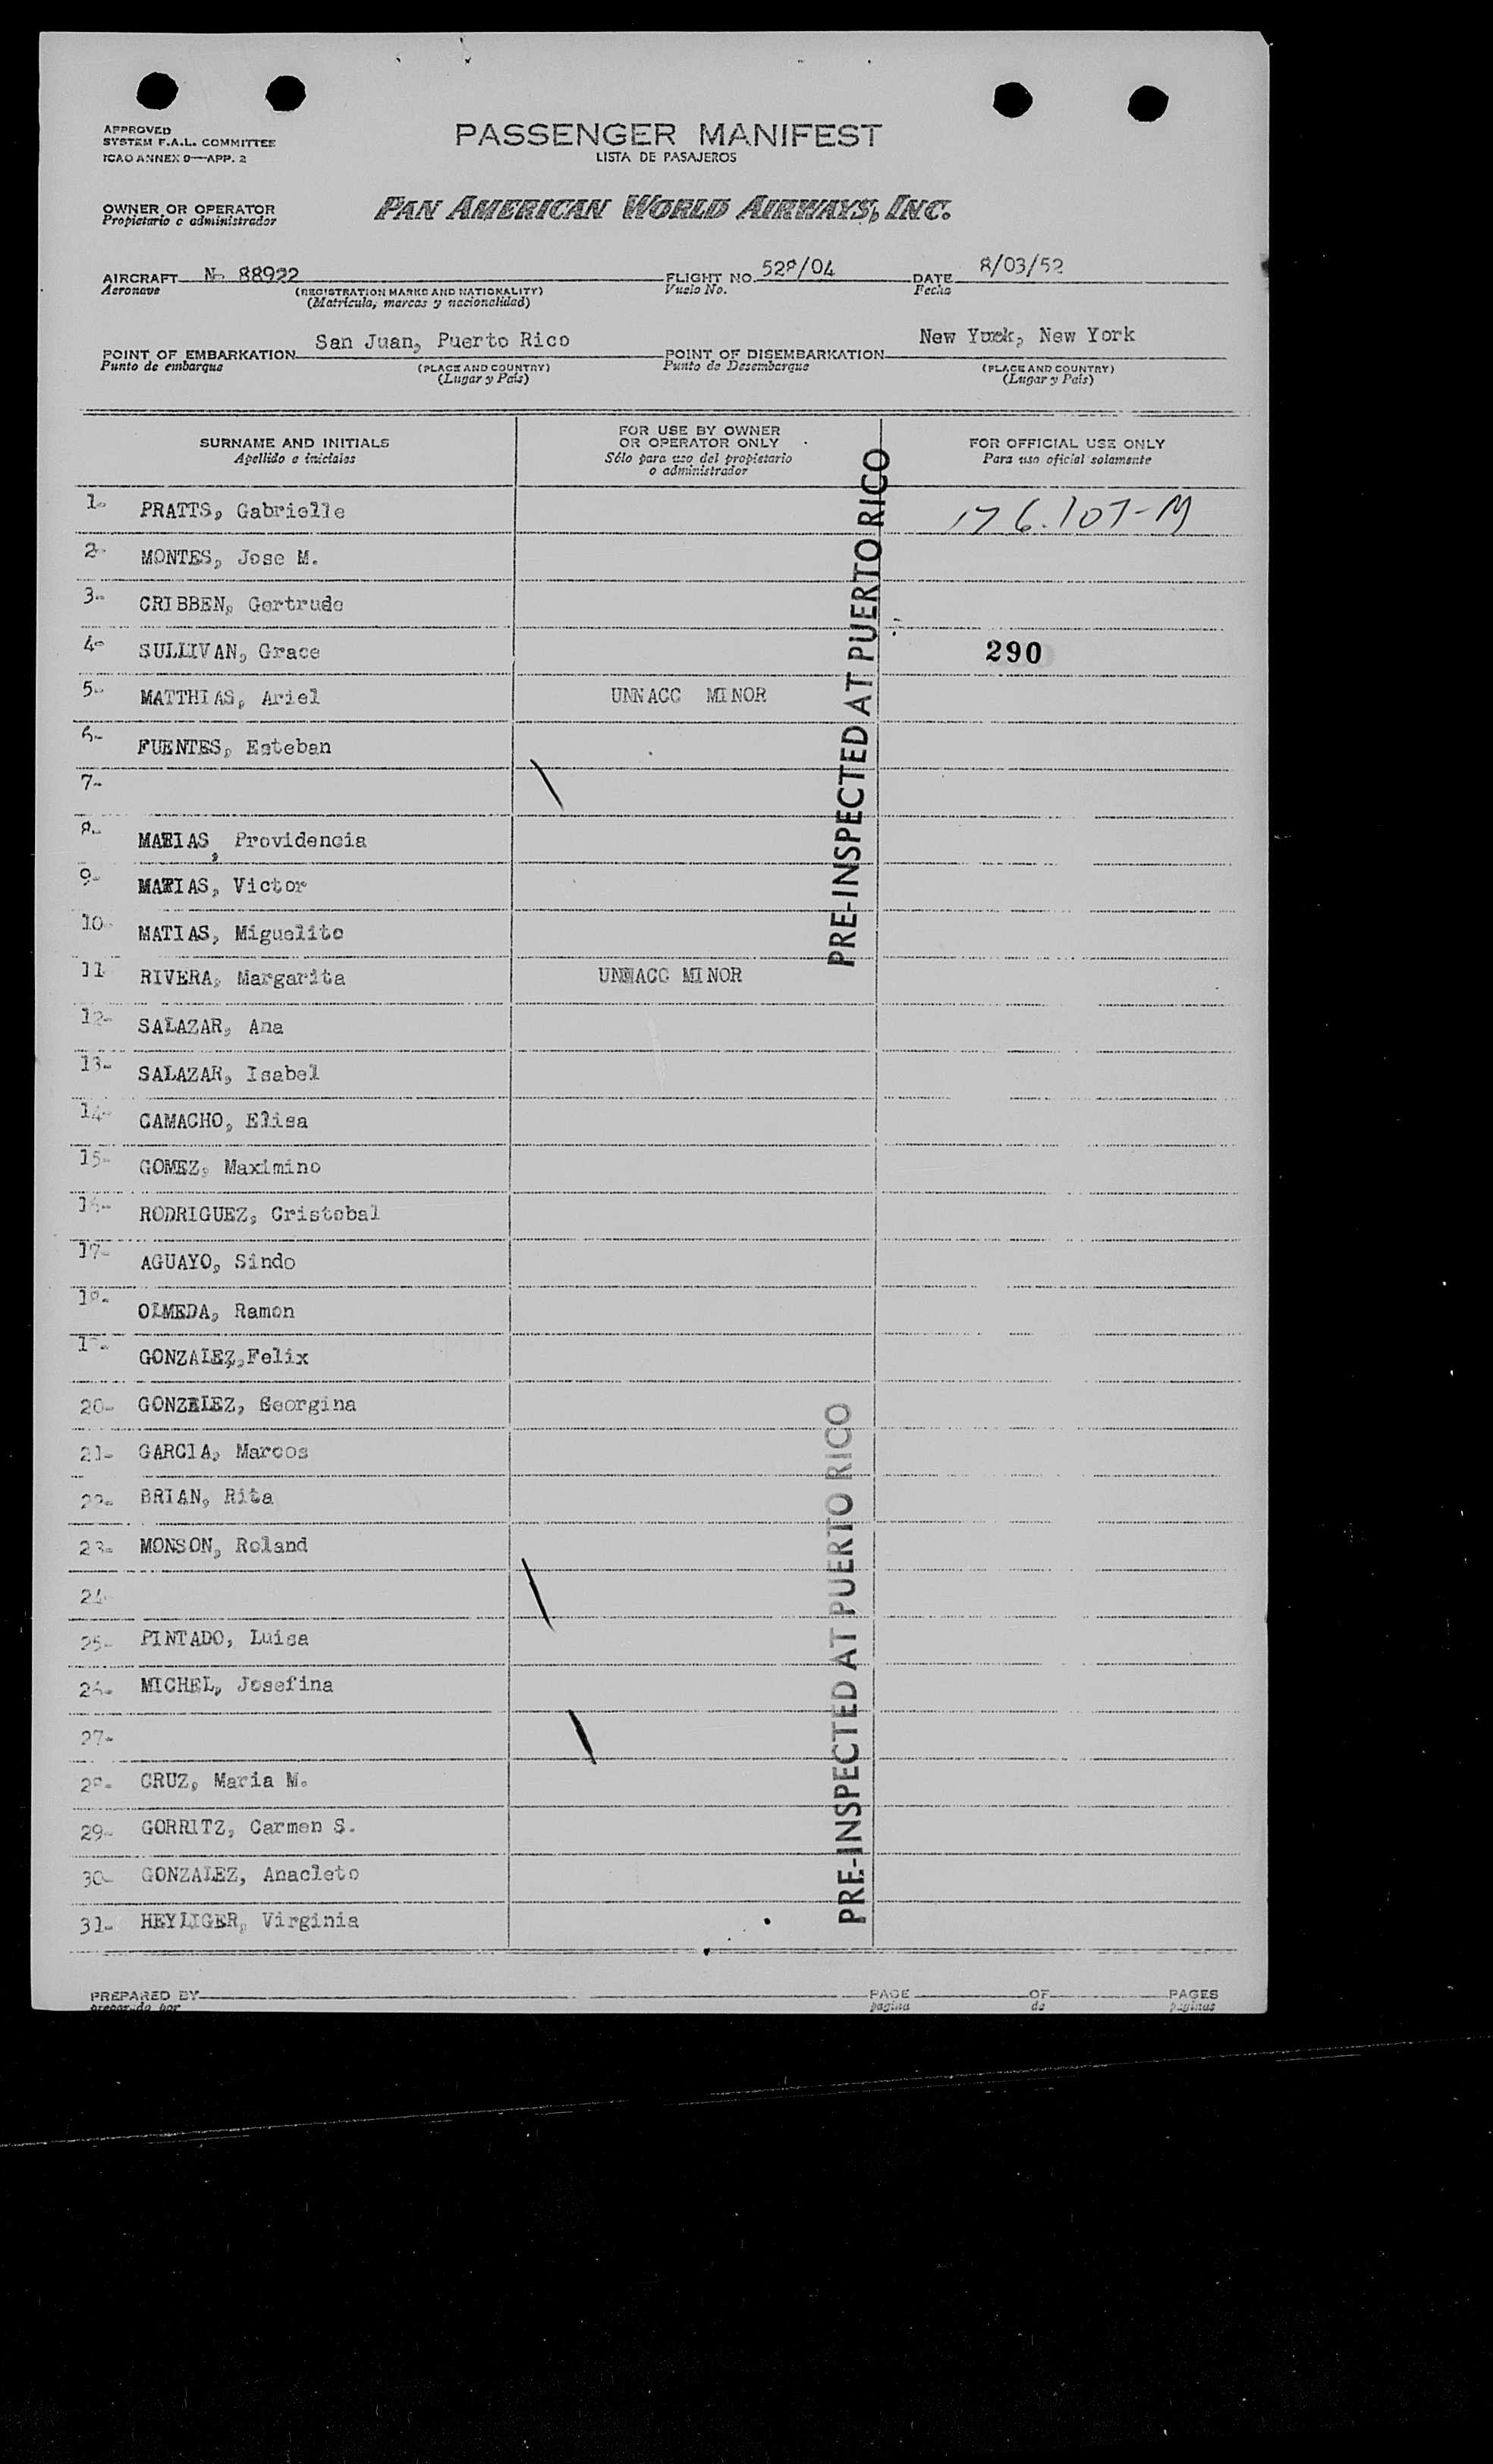 APPROVED
SYSTEM F.A.L. COMMITTEE
ICAO ANNEX 9—APP. 2
PASSENGER MANIFEST
LISTA DE PASAJEROS
OWNER OR OPERATOR
Propietario o administrador
PAN AMERICAN WORLD AIRWAYS, INC.
AIRCRAFT N- 88922 FLIGHT NO. 528/04 DATE 8/03/52
Aeronave (REGISTRATION MARKS AND NATIONALITY) Vuelo No. Fecha
(Matrícula, marcas y nacionalidad)
POINT OF EMBARKATION San Juan, Puerto Rico POINT OF DISEMBARKATION New York, New York
Punto de embarque (PLACE AND COUNTRY) Punto de Desembarque (PLACE AND COUNTRY)
(Lugar y País) (Lugar y País)
SURNAME AND INITIALS
Apellido e iniciales
FOR USE BY OWNER
OR OPERATOR ONLY
Sólo para uso del propietario
o administrador
FOR OFFICIAL USE ONLY
Para uso oficial solamente
1- PRATTS, Gabrielle 176.107-M
2- MONTES, Jose M.
3- CRIBBEN, Gertrude
4- SULLIVAN, Grace 290
5- MATTHIAS, Ariel UNNACC MINOR
6- FUENTES, Esteban
7-
8- MATIAS, Providencia
9- MATIAS, Victor
10- MATIAS, Miguelito
11 RIVERA, Margarita UNNACC MINOR
12- SALAZAR, Ana
13- SALAZAR, Isabel
14- CAMACHO, Elisa
15- GOMEZ, Maximino
16- RODRIGUEZ, Cristobal
17- AGUAYO, Sindo
18- OLMEDA, Ramon
19- GONZALEZ,Felix
20- GONZALEZ, Georgina
21- GARCIA, Marcos
22- BRIAN, Rita
23- MONSON, Roland
24
25- PINTADO, Luisa
26- MICHEL, Josefina
27-
28- CRUZ, Maria M.
29- GORRITZ, Carmen S.
30- GONZALEZ, Anacleto
31- HEYLIGER, Virginia
PRE-INSPECTED AT PUERTO RICO
PRE-INSPECTED AT PUERTO RICO
PREPARED BY PAGE OF PAGES
preparado por pagina de paginas